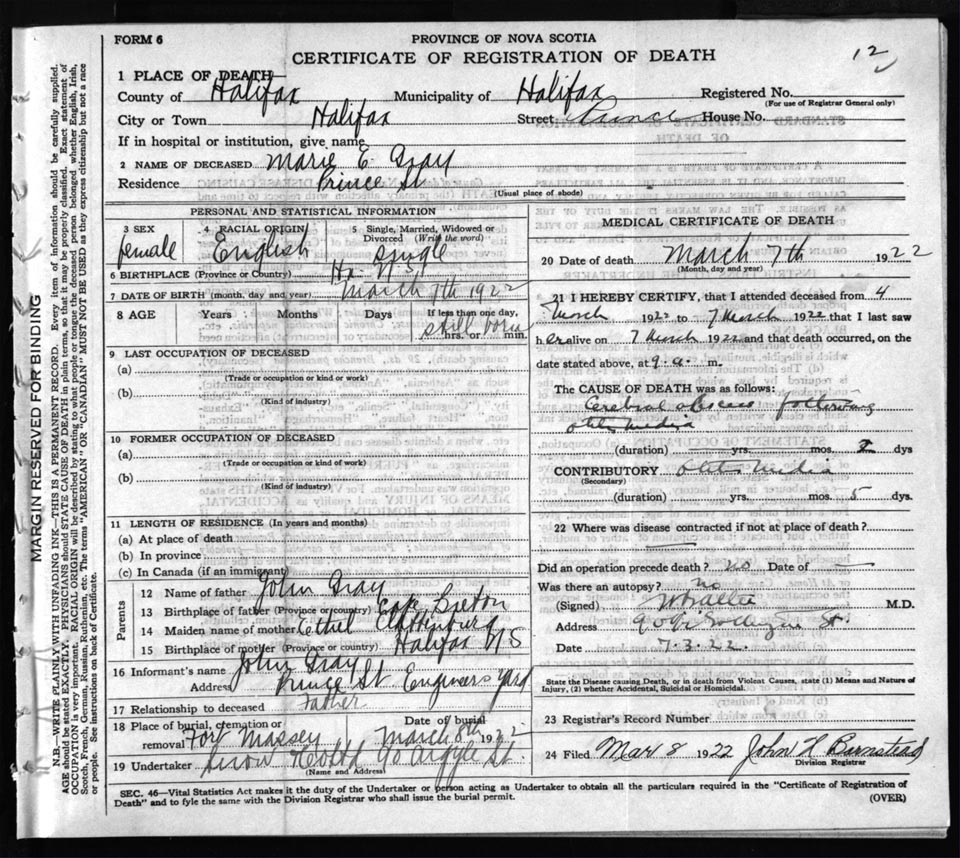 FORM 6
PROVINCE OF NOVA SCOTIA
CERTIFICATE OF REGISTRATION OF DEATH
12
1 PLACE OF DEATH—
County of Halifax Municipality of Halifax Registered No.
(For use of Registrar General only)
City or Town Halifax Street Prince House No.
If in hospital or institution, give name
2 NAME OF DECEASED Marie E. Gray
Residence Prince St
(Usual place of abode)
PERSONAL AND STATISTICAL INFORMATION
3 SEX female
4 RACIAL ORIGIN English
5 Single, Married, Widowed or Divorced (Write the word) Single
6 BIRTHPLACE (Province or Country) Hx. N.S.
7 DATE OF BIRTH (month, day and year) March 7th 1922
8 AGE Years Months Days If less than one day, still born hrs. or min.
9 LAST OCCUPATION OF DECEASED
(a)
(Trade or occupation or kind of work)
(b)
(Kind of industry)
10 FORMER OCCUPATION OF DECEASED
(a)
(Trade or occupation or kind of work)
(b)
(Kind of industry)
11 LENGTH OF RESIDENCE (In years and months)
(a) At place of death
(b) In province
(c) In Canada (if an immigrant)
Parents
12 Name of father John Gray
13 Birthplace of father (Province or country) Cape Breton
14 Maiden name of mother Ethel
15 Birthplace of mother (Province or country) Halifax N S
16 Informant's name John Gray
Address Prince St Engineers Yard
17 Relationship to deceased Father
18 Place of burial, cremation or removal Fort Massey Date of burial March 8th 1922
19 Undertaker Snow 90 Argyle St.
(Name and Address)
MEDICAL CERTIFICATE OF DEATH
20 Date of death March 7th 1922
(Month, day and year)
21 I HEREBY CERTIFY, that I attended deceased from 4
March 1922 to 7 March 1922 that I last saw
her alive on 7 March 1922 and that death occurred, on the
date stated above, at 9 a. m.
The CAUSE OF DEATH was as follows:
Cerebral abscess following
otitis media
(duration) yrs. mos. dys
CONTRIBUTORY otitis media
(Secondary)
(duration) yrs. mos. 5 dys.
22 Where was disease contracted if not at place of death?
—
Did an operation precede death? no Date of —
Was there an autopsy? no
(Signed) M.D.
Address St.
Date 7.3.22.
State the Disease causing Death, or in death from Violent Causes, state (1) Means and Nature of
Injury, (2) whether Accidental, Suicidal or Homicidal.
23 Registrar's Record Number
24 Filed Mar 8 1922 John H Barnstead
Division Registrar
SEC. 46—Vital Statistics Act makes it the duty of the Undertaker or person acting as Undertaker to obtain all the particulars required in the "Certificate of Registration of
Death" and to fyle the same with the Division Registrar who shall issue the burial permit.
(OVER)
MARGIN RESERVED FOR BINDING
N.B.—WRITE PLAINLY WITH UNFADING INK—THIS IS A PERMANENT RECORD. Every item of information should be carefully supplied.
AGE should be stated EXACTLY. PHYSICIANS should STATE CAUSE OF DEATH in plain terms, so that it may be properly classified. Exact statement of
OCCUPATION is very important. RACIAL ORIGIN will be described by stating to what people or tongue the deceased person belonged whether English, Irish,
Scotch, French, German, Russian, Ruthenian, etc. The terms "AMERICAN" OR "CANADIAN" MUST NOT BE USED as they express citizenship but not a race
or people. See instructions on back of Certificate.